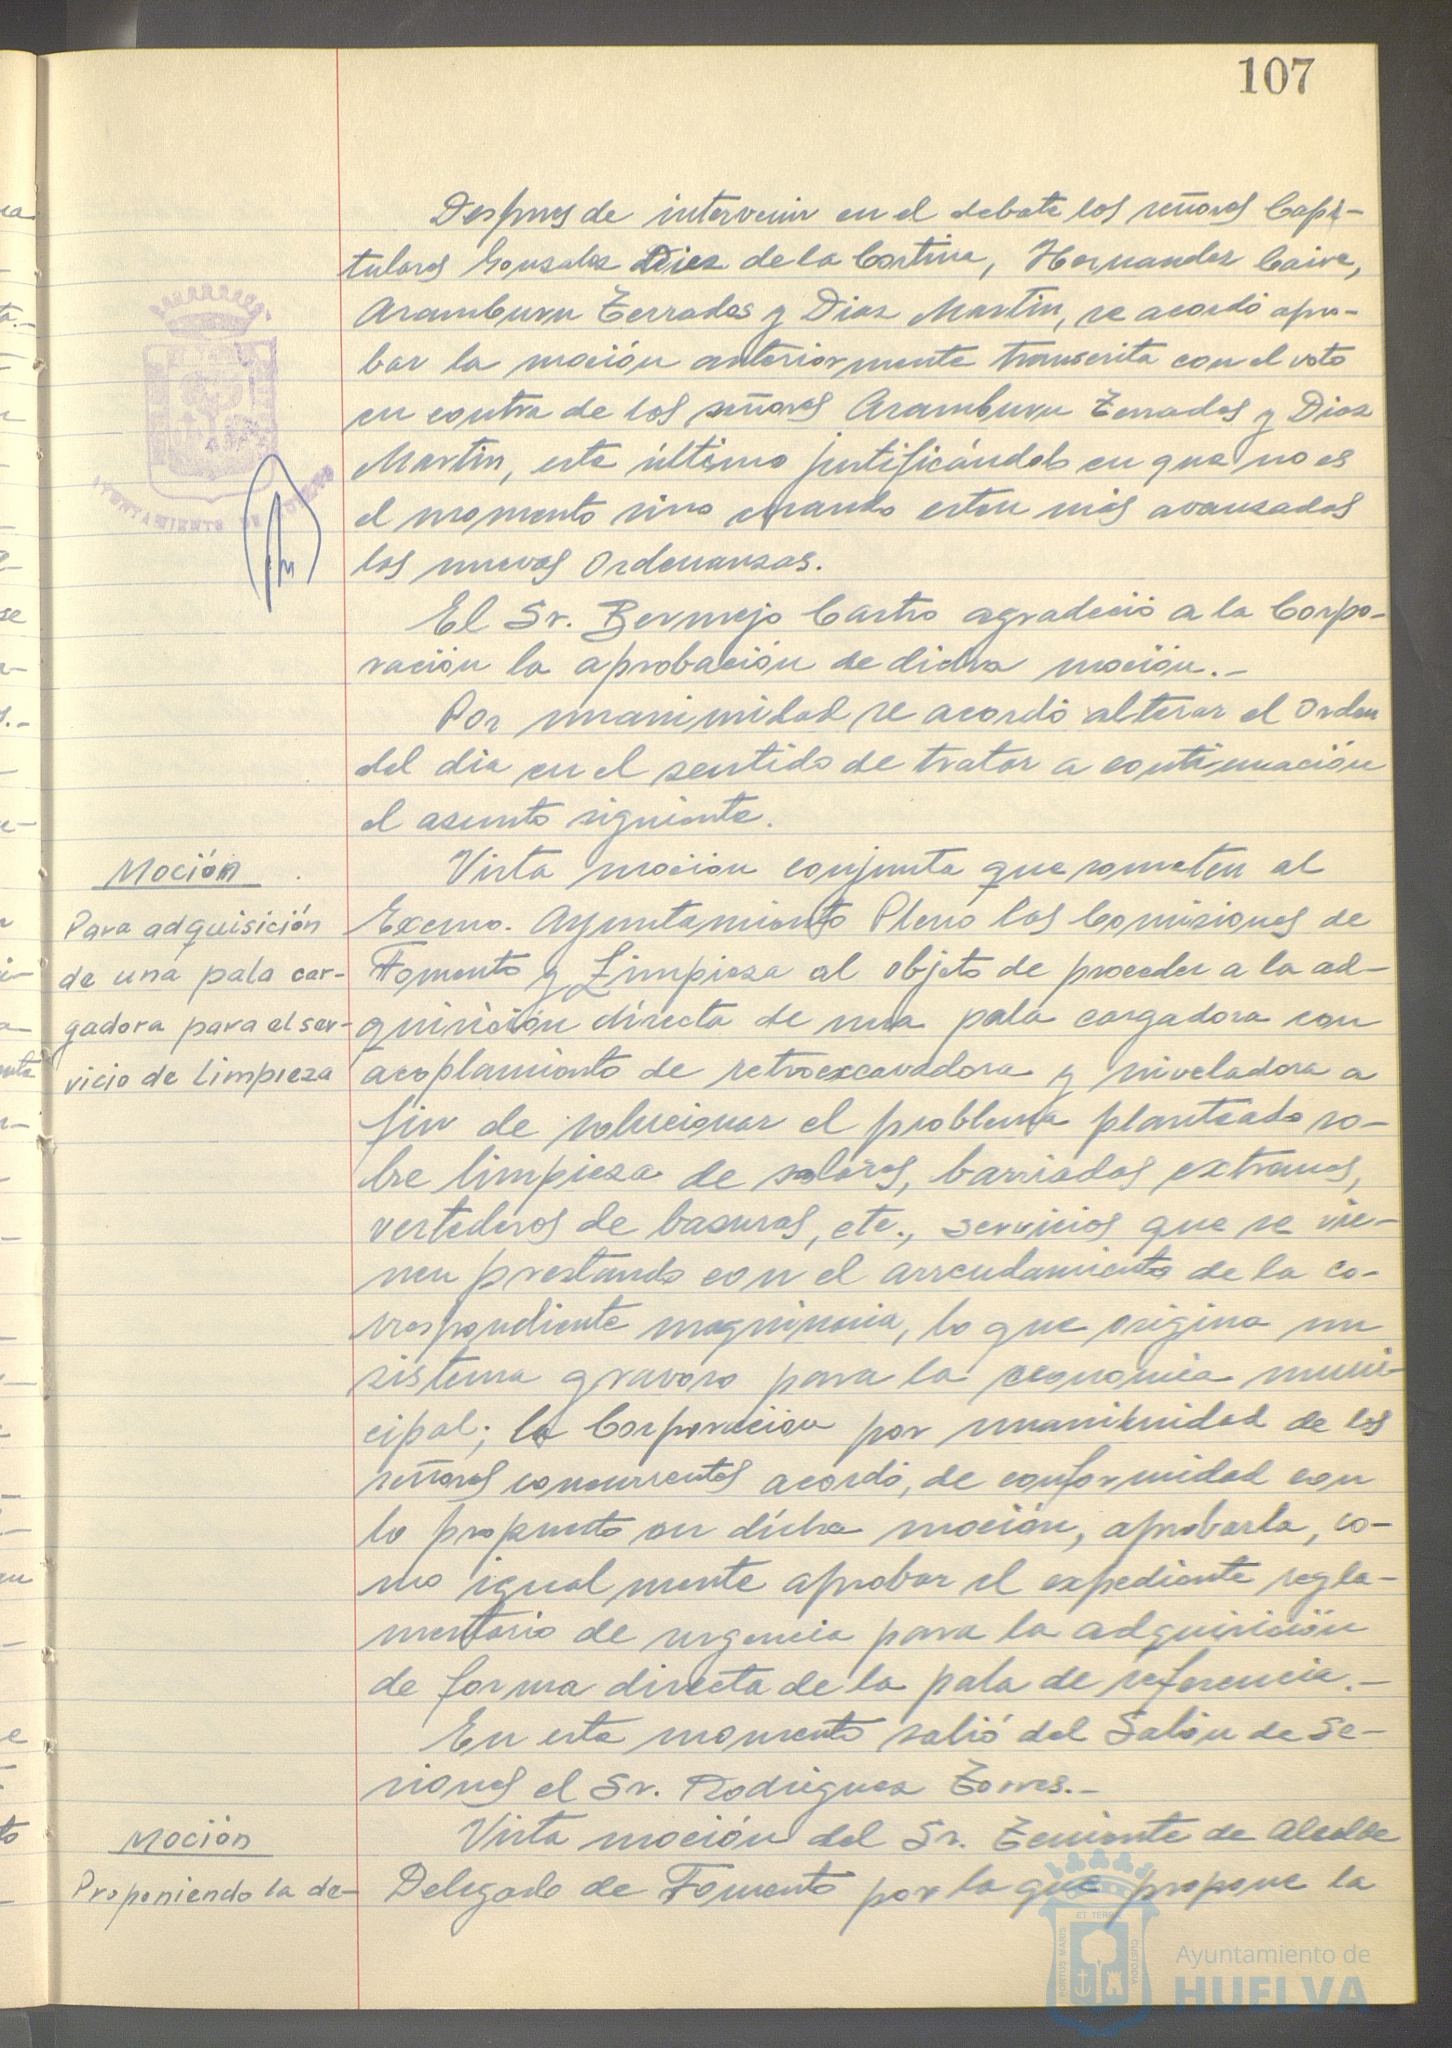 107
Despues de intervenir en el debate los señores Capi-
tulares Gonzalez Diez de la Cortina, Hernandez Caire,
Aramburu Terrades y Diaz Martin, se acordó apro-
bar la moción anteriormente transcrita con el voto
en contra de los señores Aramburu Terrades y Diaz
Martin, este último justificándolo en que no es
el momento sino cuando esten más avanzados
las nuevas Ordenanzas.
El Sr. Bermejo Castro agradeció a la Corpo-
ración la aprobación de dicha moción.-
Por unanimidad se acordó alterar el Orden
del dia en el sentido de tratar a continuación
el asunto siguiente.
Moción
Para adquisición
de una pala car-
gadora para el ser-
vicio de limpieza
Vista moción conjunta que someten al
Excmo. Ayuntamiento Pleno las Comisiones de
Fomento y Limpieza al objeto de proceder a la ad-
quisición directa de una pala cargadora con
acoplamiento de retroexcavadora y niveladora a
fin de solucionar el problema planteado so-
bre limpieza de solares, barriadas extremas,
vertederos de basuras, etc., servicios que se vie-
nen prestando con el arrendamiento de la co-
rrespondiente maquinaria, lo que origina un
sistema gravoso para la economia muni-
cipal; la Corporacion por unanimidad de los
señores concurrentes acordó, de conformidad con
lo propuesto en dicha moción, aprobarla, co-
mo igualmente aprobar el expediente regla-
mentario de urgencia para la adquisición
de forma directa de la pala de referencia.-
En este momento salió del Salón de Se-
siones el Sr. Rodriguez Torres.-
Moción
Proponiendo la de-
Vista moción del Sr. Teniente de Alcalde
Delegado de Fomento por la que propone la
AYUNTAMIENTO DE
PORTUS MARIS
ET TERRAE
CUSTODIA
Ayuntamiento de
HUELVA